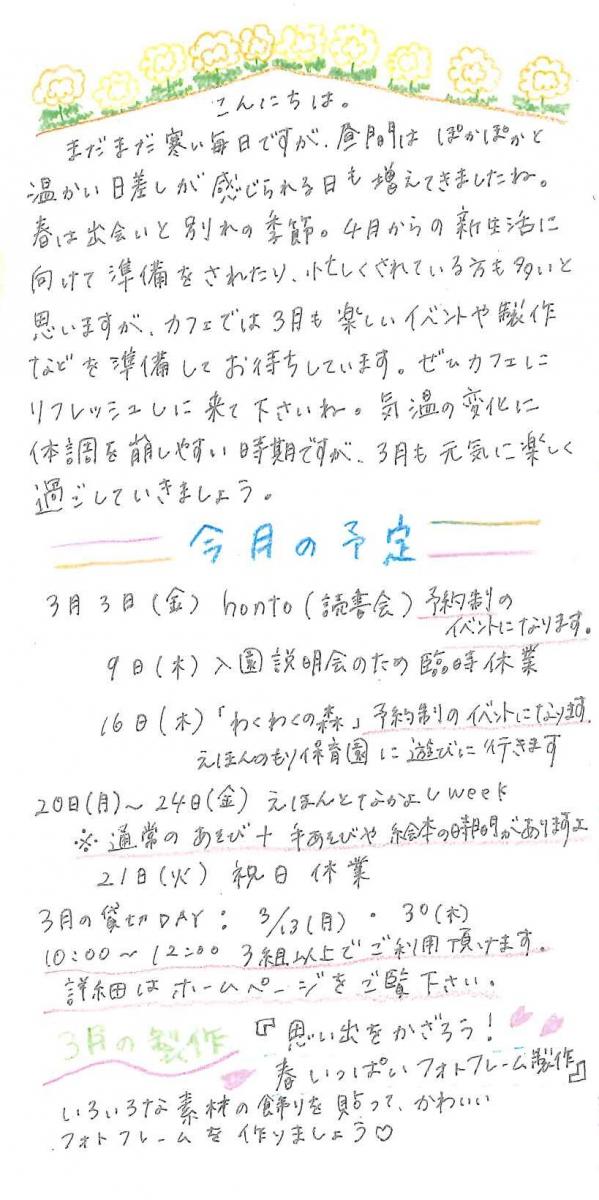 こんにちは。
まだまだ寒い毎日ですが、昼間は ぽかぽかと
温かい日差しが感じられる日も増えてきましたね。
春は出会いと別れの季節。4月からの新生活に
向けて準備をされたり、忙しくされている方も多いと
思いますが、カフェでは3月も楽しいイベントや製作
などを準備してお待ちしています。ぜひカフェに
リフレッシュしに来て下さいね。気温の変化に
体調を崩しやすい時期ですが、3月も元気に楽しく
過ごしていきましょう。
今月の予定
3月3日(金) honto(読書会) 予約制の
イベントになります。
9日(木) 入園説明会のため臨時休業
16日(木)「わくわくの森」予約制のイベントになります。
えほんのもり保育園に遊びに行きます
20日(月)～24日(金) えほんとなかよしweek
※通常のあそび+手あそびや絵本の時間がありますよ
21日(火) 祝日休業
3月の貸切DAY: 3/13(月)・30(木)
10:00～12:00 3組以上でご利用頂けます。
詳細はホームページをご覧下さい。
3月の製作 『思い出をかざろう!
春いっぱいフォトフレーム製作』
いろいろな素材の飾りを貼って、かわいい
フォトフレームを作りましょう♡